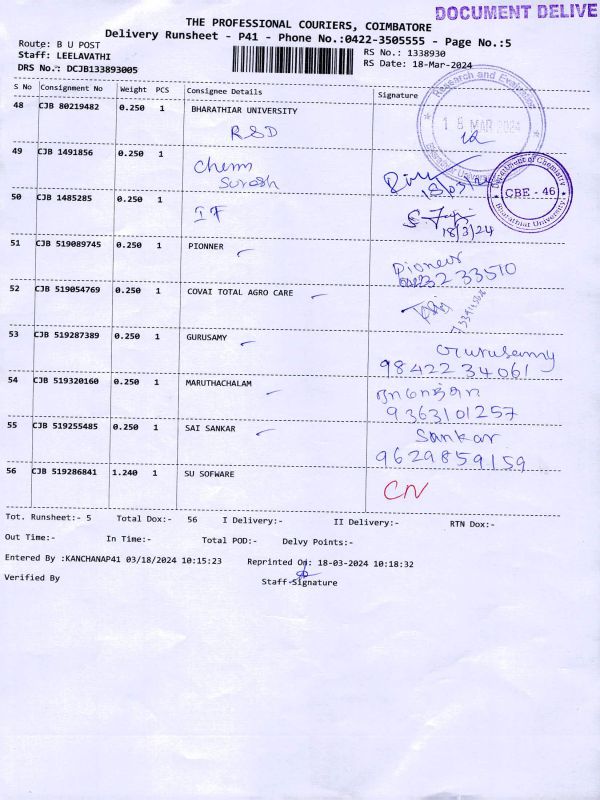 DOCUMENT DELIVE
THE PROFESSIONAL COURIERS, COIMBATORE
Delivery Runsheet - P41 - Phone No.:0422-3505555 - Page No.:5
Route: B U POST
RS No.: 1338930
Staff: LEELAVATHI
RS Date: 18-Mar-2024
DRS No.: DCJB133893005
S No Consignment No Weight PCS Consignee Details Signature
48 CJB 80219482 0.250 1 BHARATHIAR UNIVERSITY
RSD
Research and
MAR 2024
49 CJB 1491856 0.250 1
Chem
Suresh
18/03/24
Department of Chemistry
CBE - 46
Bharathiar University
50 CJB 1485285 0.250 1
IF
18/3/24
51 CJB 519089745 0.250 1 PIONNER
Pioneer
33510
52 CJB 519054769 0.250 1 COVAI TOTAL AGRO CARE
53 CJB 519287389 0.250 1 GURUSAMY
Gurusamy
98422 34061
54 CJB 519320160 0.250 1 MARUTHACHALAM
9363101257
55 CJB 519255485 0.250 1 SAI SANKAR
Sankar
9629859159
56 CJB 519286841 1.240 1 SU SOFWARE
CN
Tot. Runsheet:- 5 Total Dox:- 56 I Delivery:- II Delivery:- RTN Dox:-
Out Time:- In Time:- Total POD:- Delvy Points:-
Entered By :KANCHANAP41 03/18/2024 10:15:23 Reprinted On: 18-03-2024 10:18:32
Verified By Staff-Signature